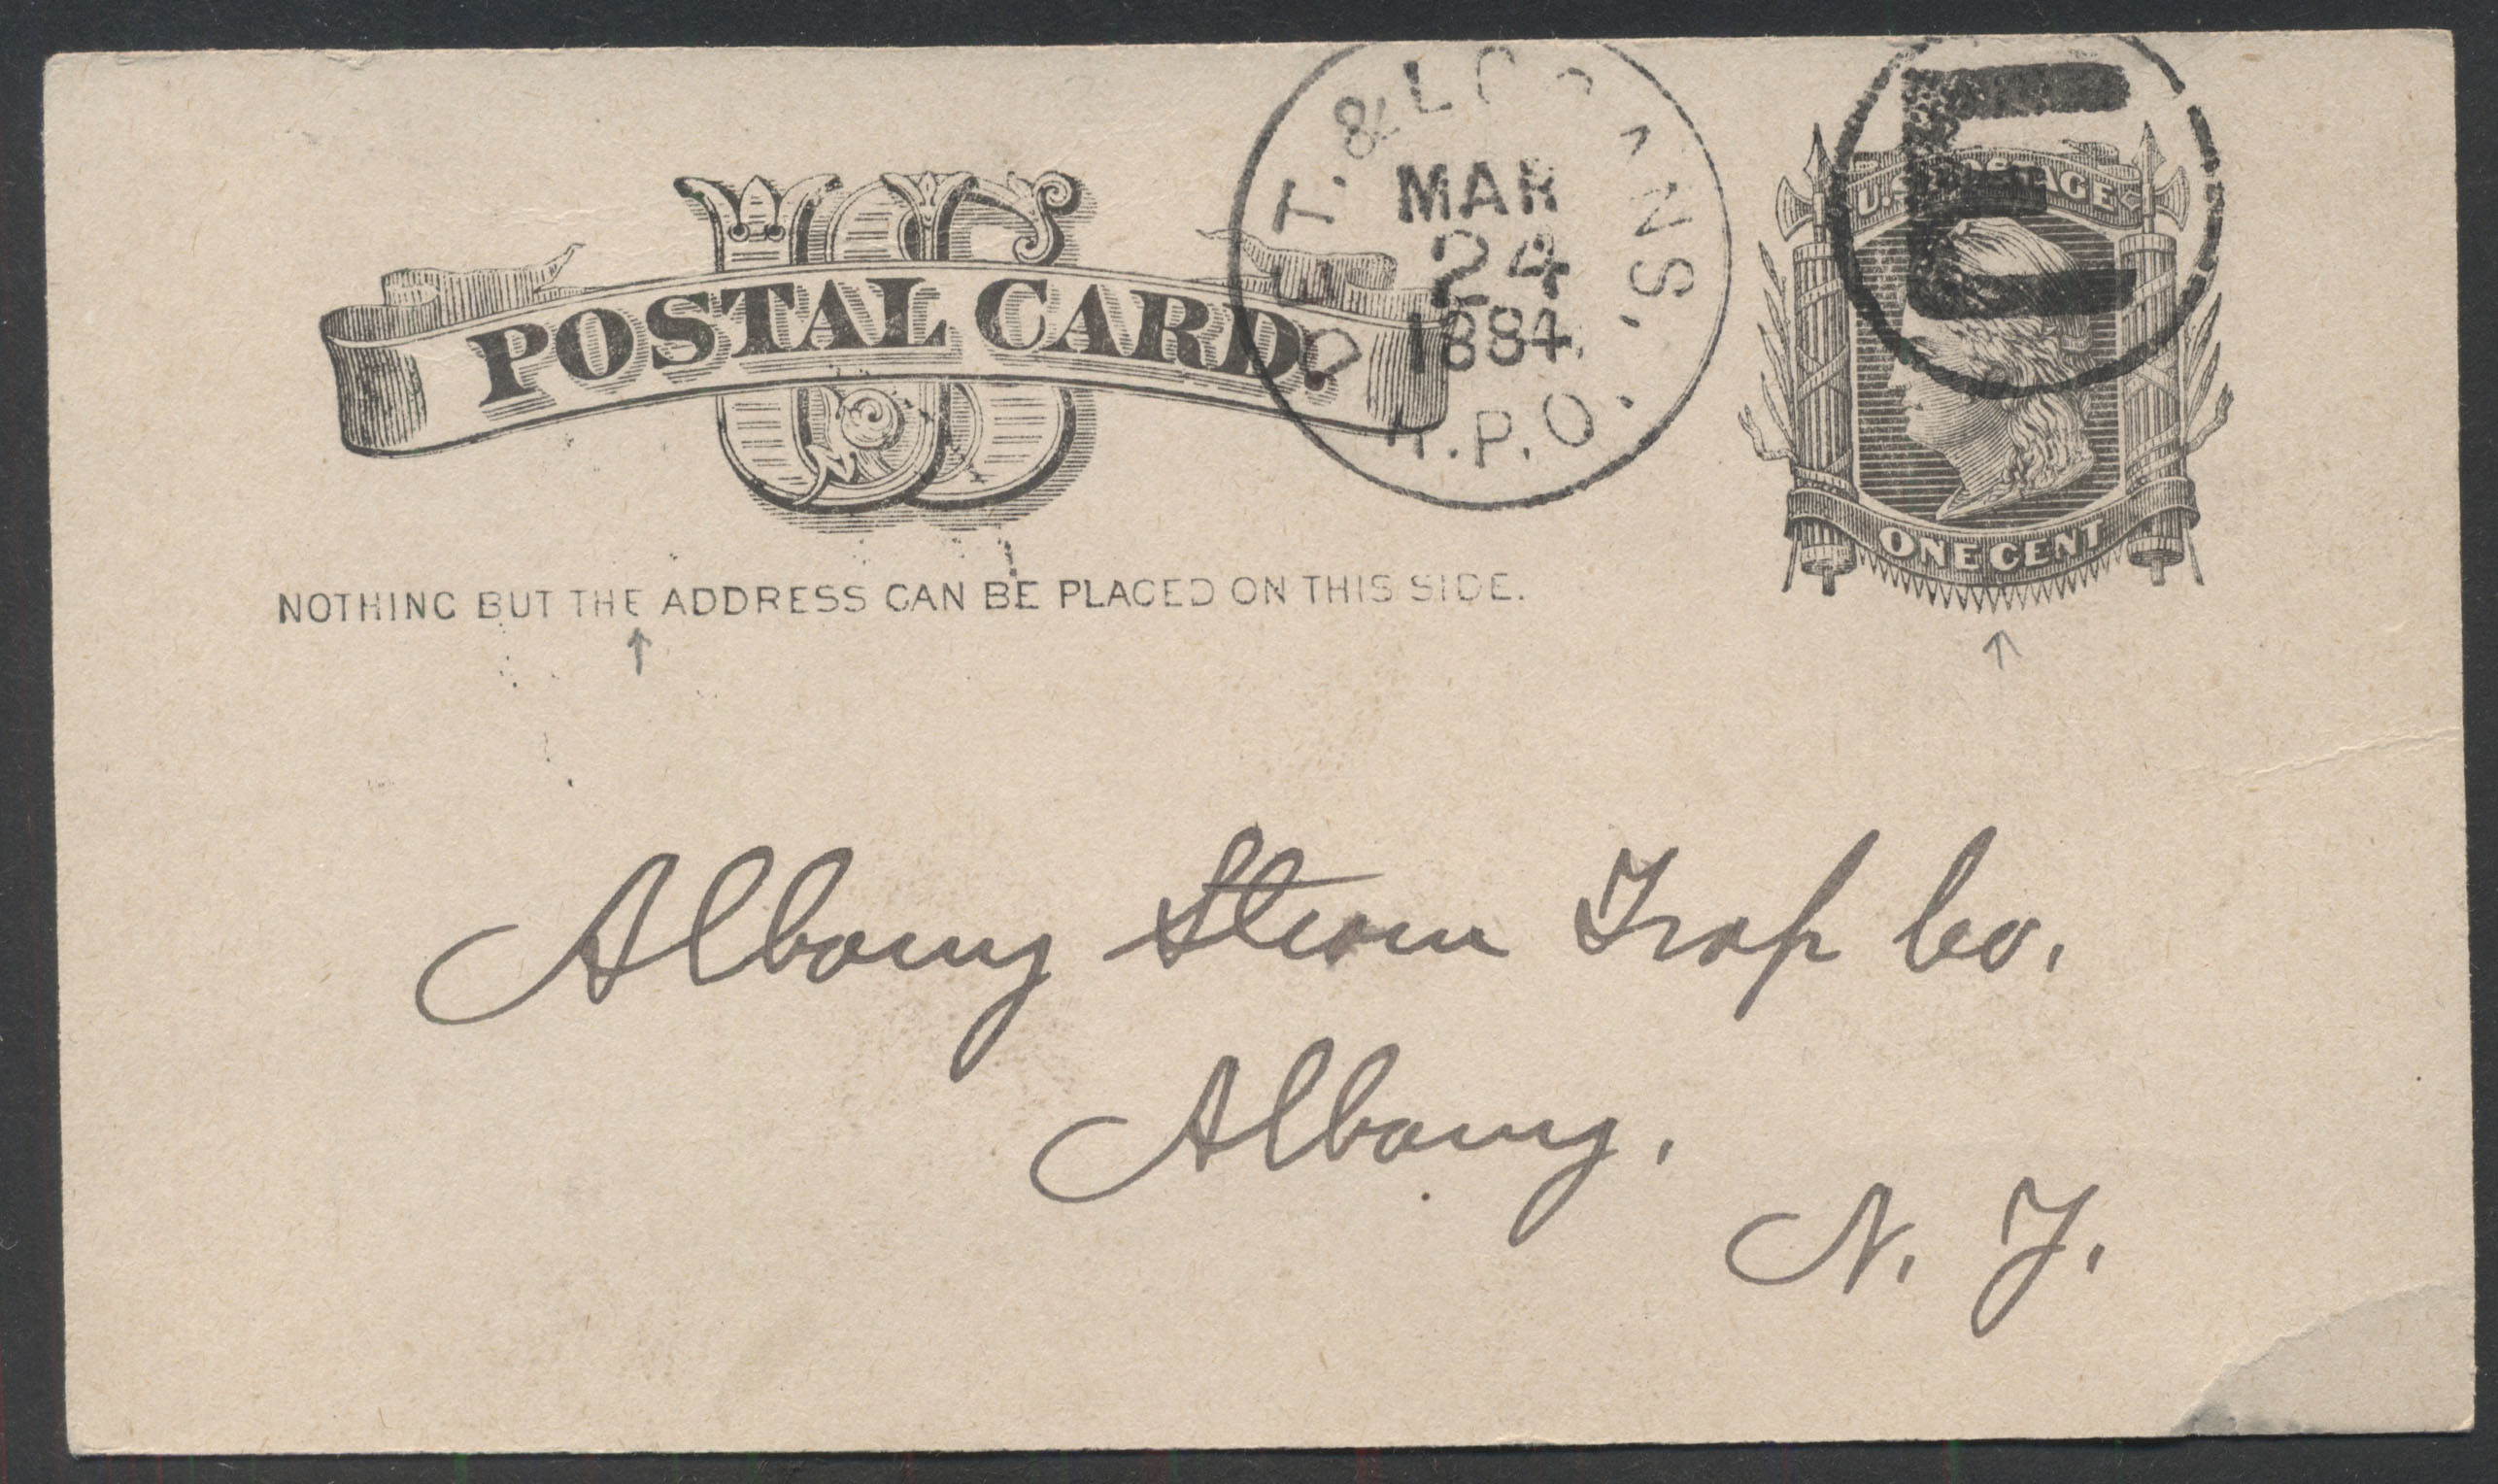 US
POSTAL CARD.
DET. & LOGANS,
MAR
24
1884.
R.P.O.
E
U.S. POSTAGE
ONE CENT
NOTHING BUT THE ADDRESS CAN BE PLACED ON THIS SIDE.
Albany Steam Trap Co.
Albany,
N. Y.